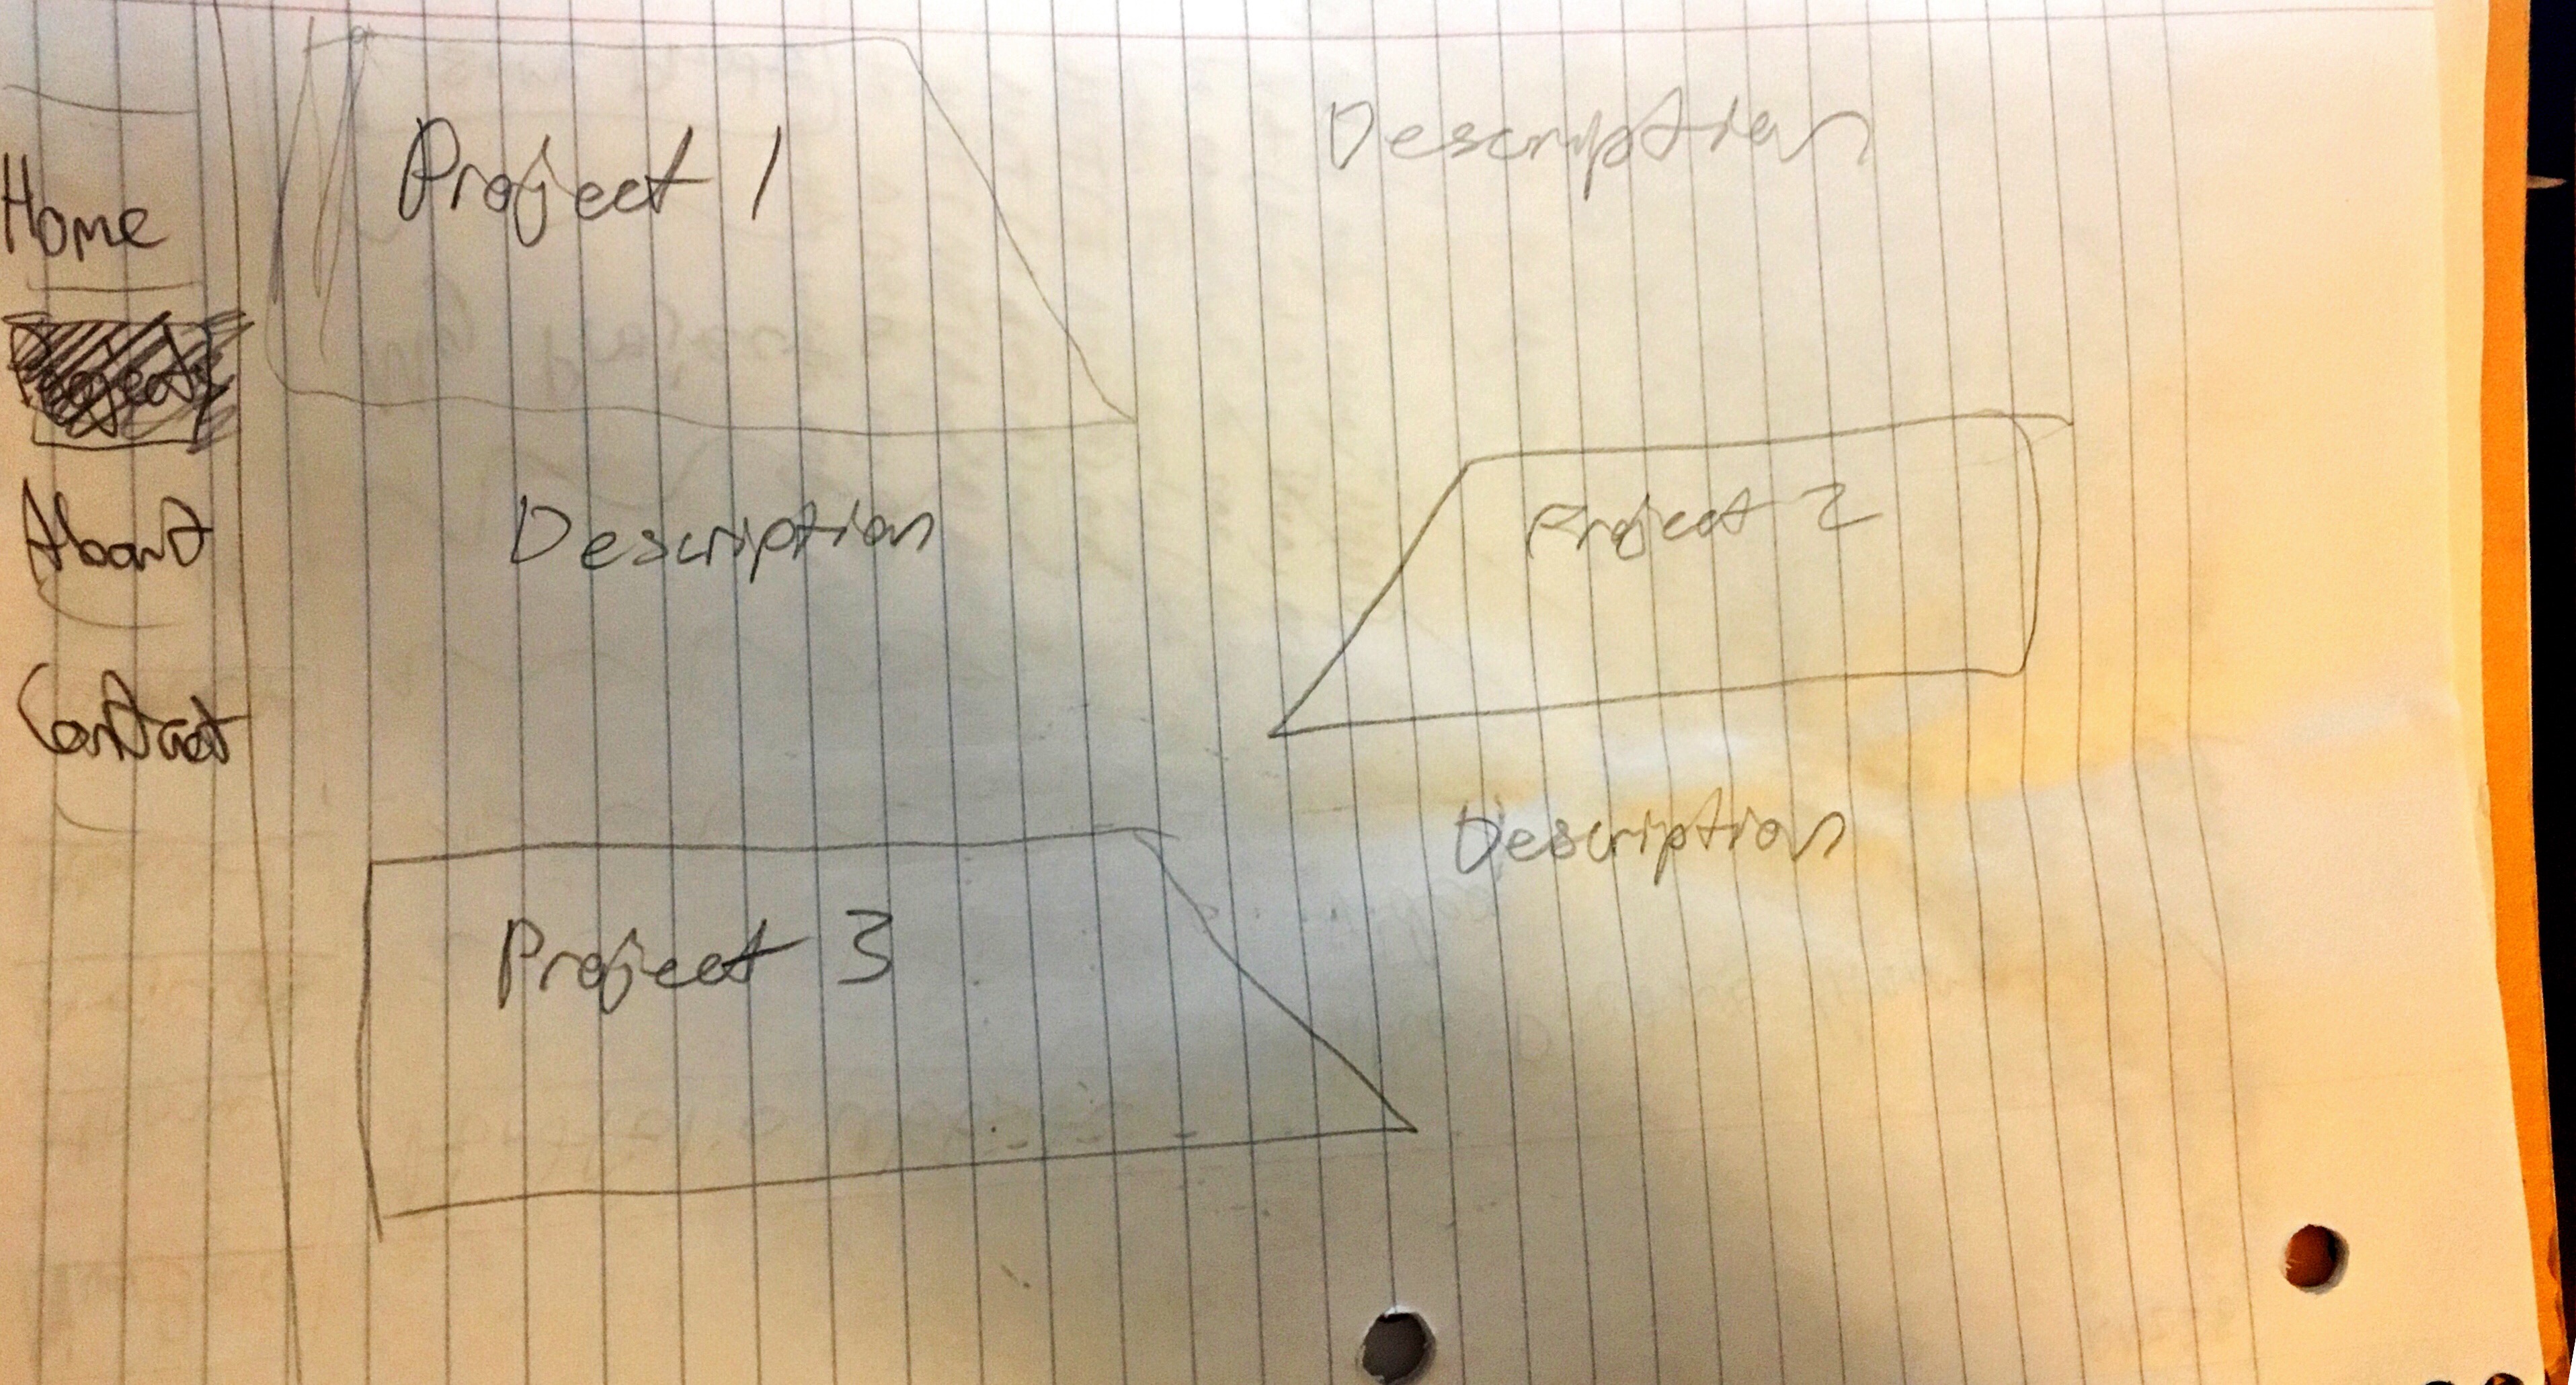 Home
Projects
About
Contact
Project 1
Description
Description
Project 2
Project 3
Description